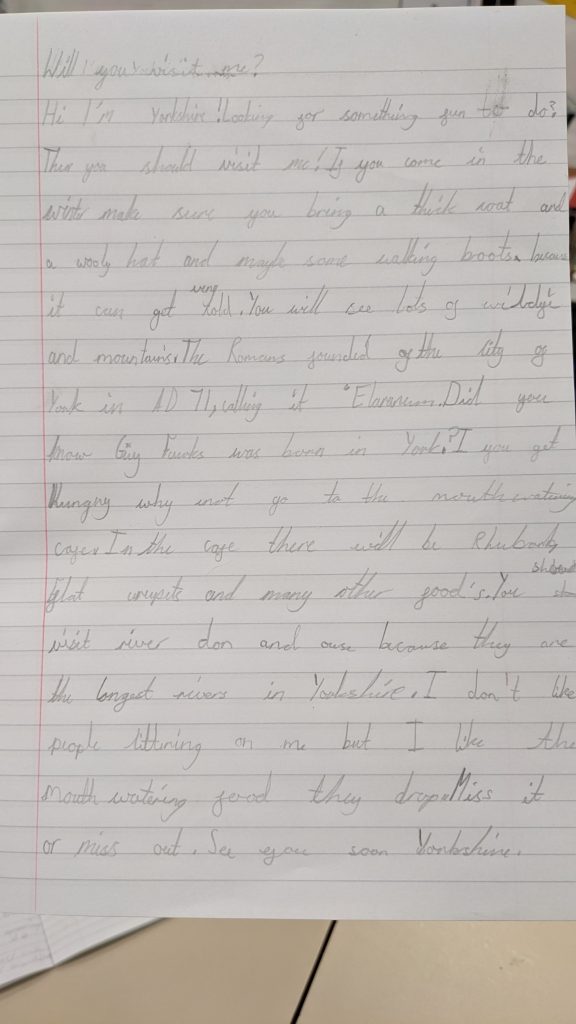 Will you visit me?
Hi I'm Yorkshire! Looking for something fun to do?
Then you should visit me! If you come in the
wintr make sure you bring a thick coat and
a wooly hat and mayb some walking boots, because
it can get very cold. You will see lots of
and mountains. The Romans founded of the city of
York in AD 71, calling it "Eloraneum. Did you
know Guy Fawks was born in York? I you get
Hungry why not go to the mouthwatering
cafe. In the cafe there will be Rhubarb,
flat and many other food's. You should
visit river don and ouse because they are
the longest rivers in Yorkshire. I don't like
people littering on me but I like the
mouth watering food they drop. Miss it
or miss out. See you soon Yorkshire.